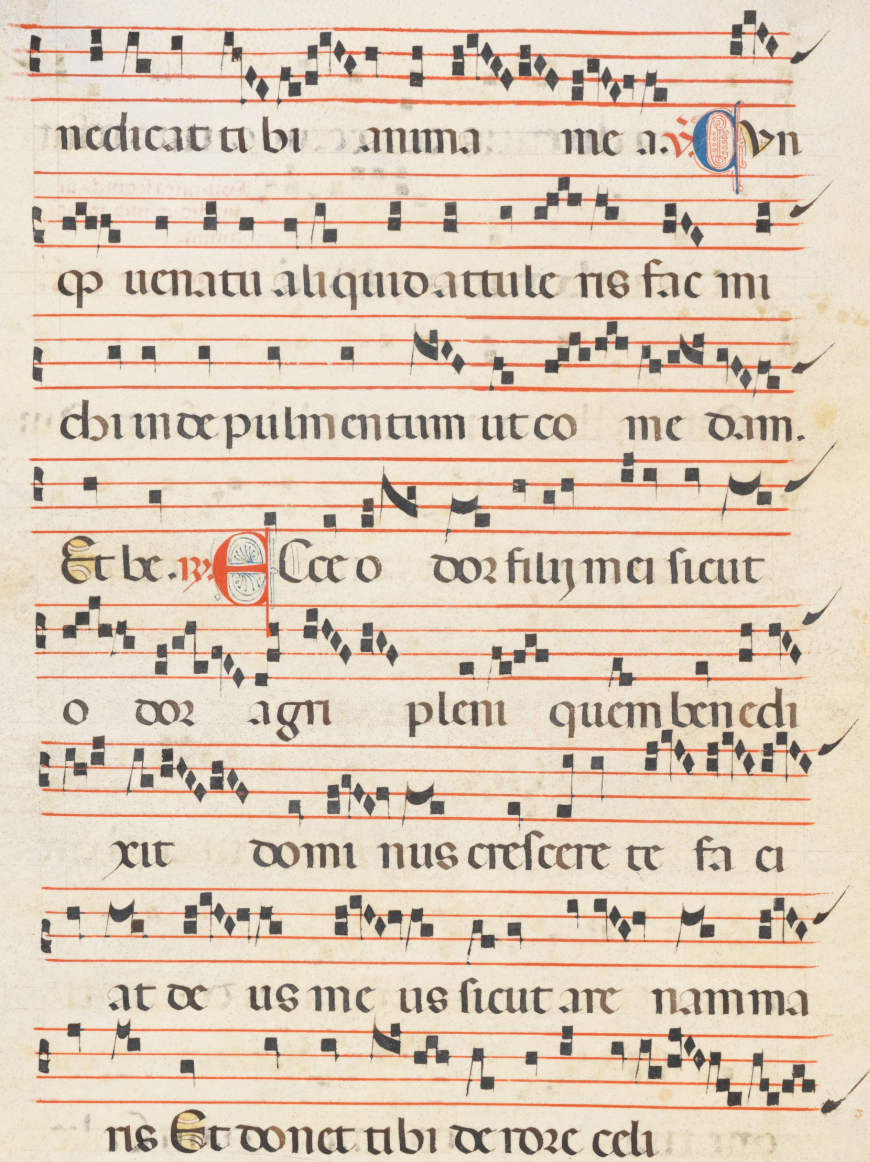 nedicat tibi anima me a. ℣. Qvn
qƺ uenatu aliquid attule ris fac mi
chi inde pulmentum ut co me dam.
Et be. ℟. ECce o dor filij mei sicut
o dor agri pleni quem benedi
xit domi nus crescere te fa ci
at de us me us sicut are nam ma
ris Et donet tibi de rore celi